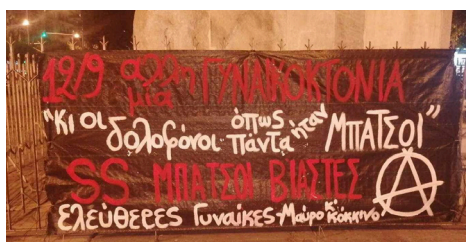 12/9 άλλη μια ΓΥΝΑΙΚΟΚΤΟΝΙΑ
"ΚΙ ΟΙ δολοφόνοι όπως πάντα ήταν ΜΠΑΤΣΟΙ"
SS ΜΠΑΤΣΟΙ ΒΙΑΣΤΕΣ
Ελεύθερες Γυναίκες - Μαύρο κι' κόκκινο